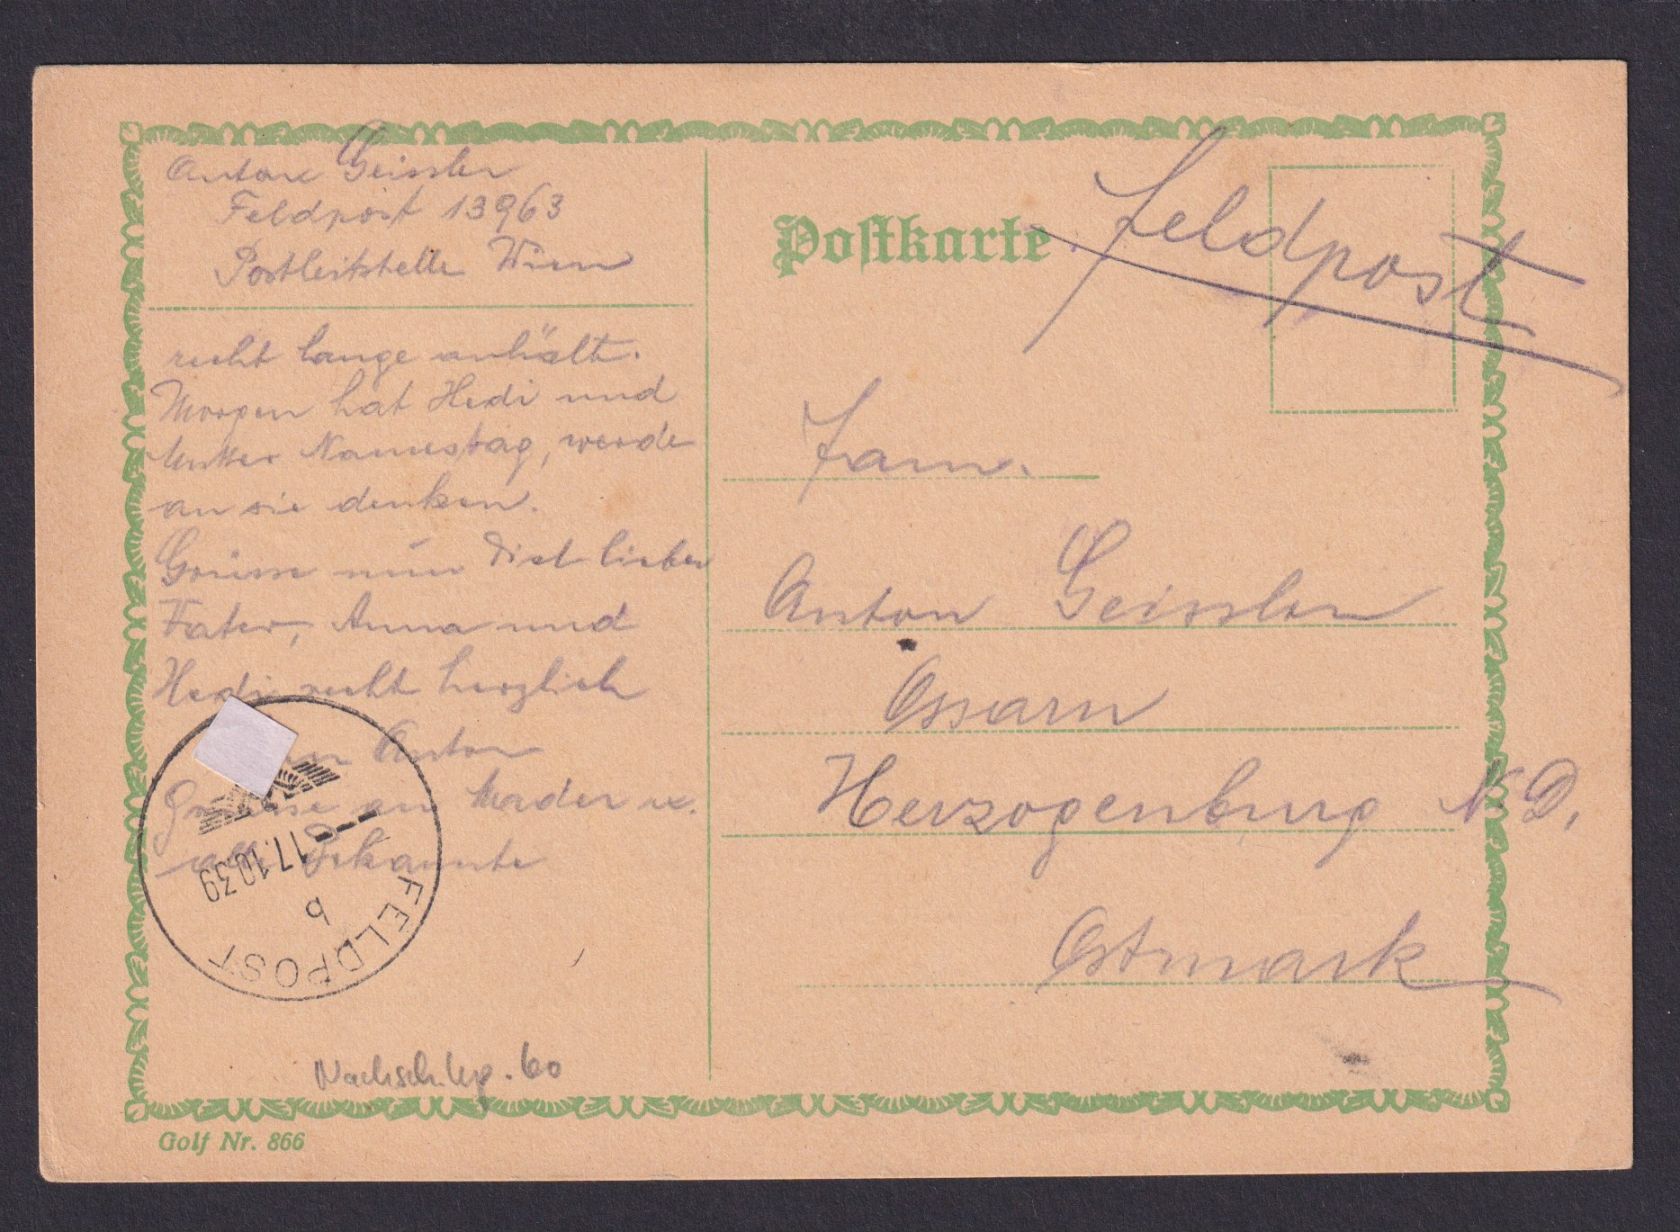 Anton Geissler
Feldpost 13963
Postleitstelle Wien
recht lange anhält.
Morgen hat Hedi und
Mutter Namestag, werde
an sie denken.
Grüsse nun Dich lieber
Fater, Anna und
Hedi recht herzlich
Anton
Grüsse an Mader u.
alle Bekannte
FELDPOST
b
17.10.39
Nachsch.
60
Golf Nr. 866
Postkarte
Feldpost
Fam.
Anton Geissler
Ossarn
Herzogenburg N. D.
Ostmark